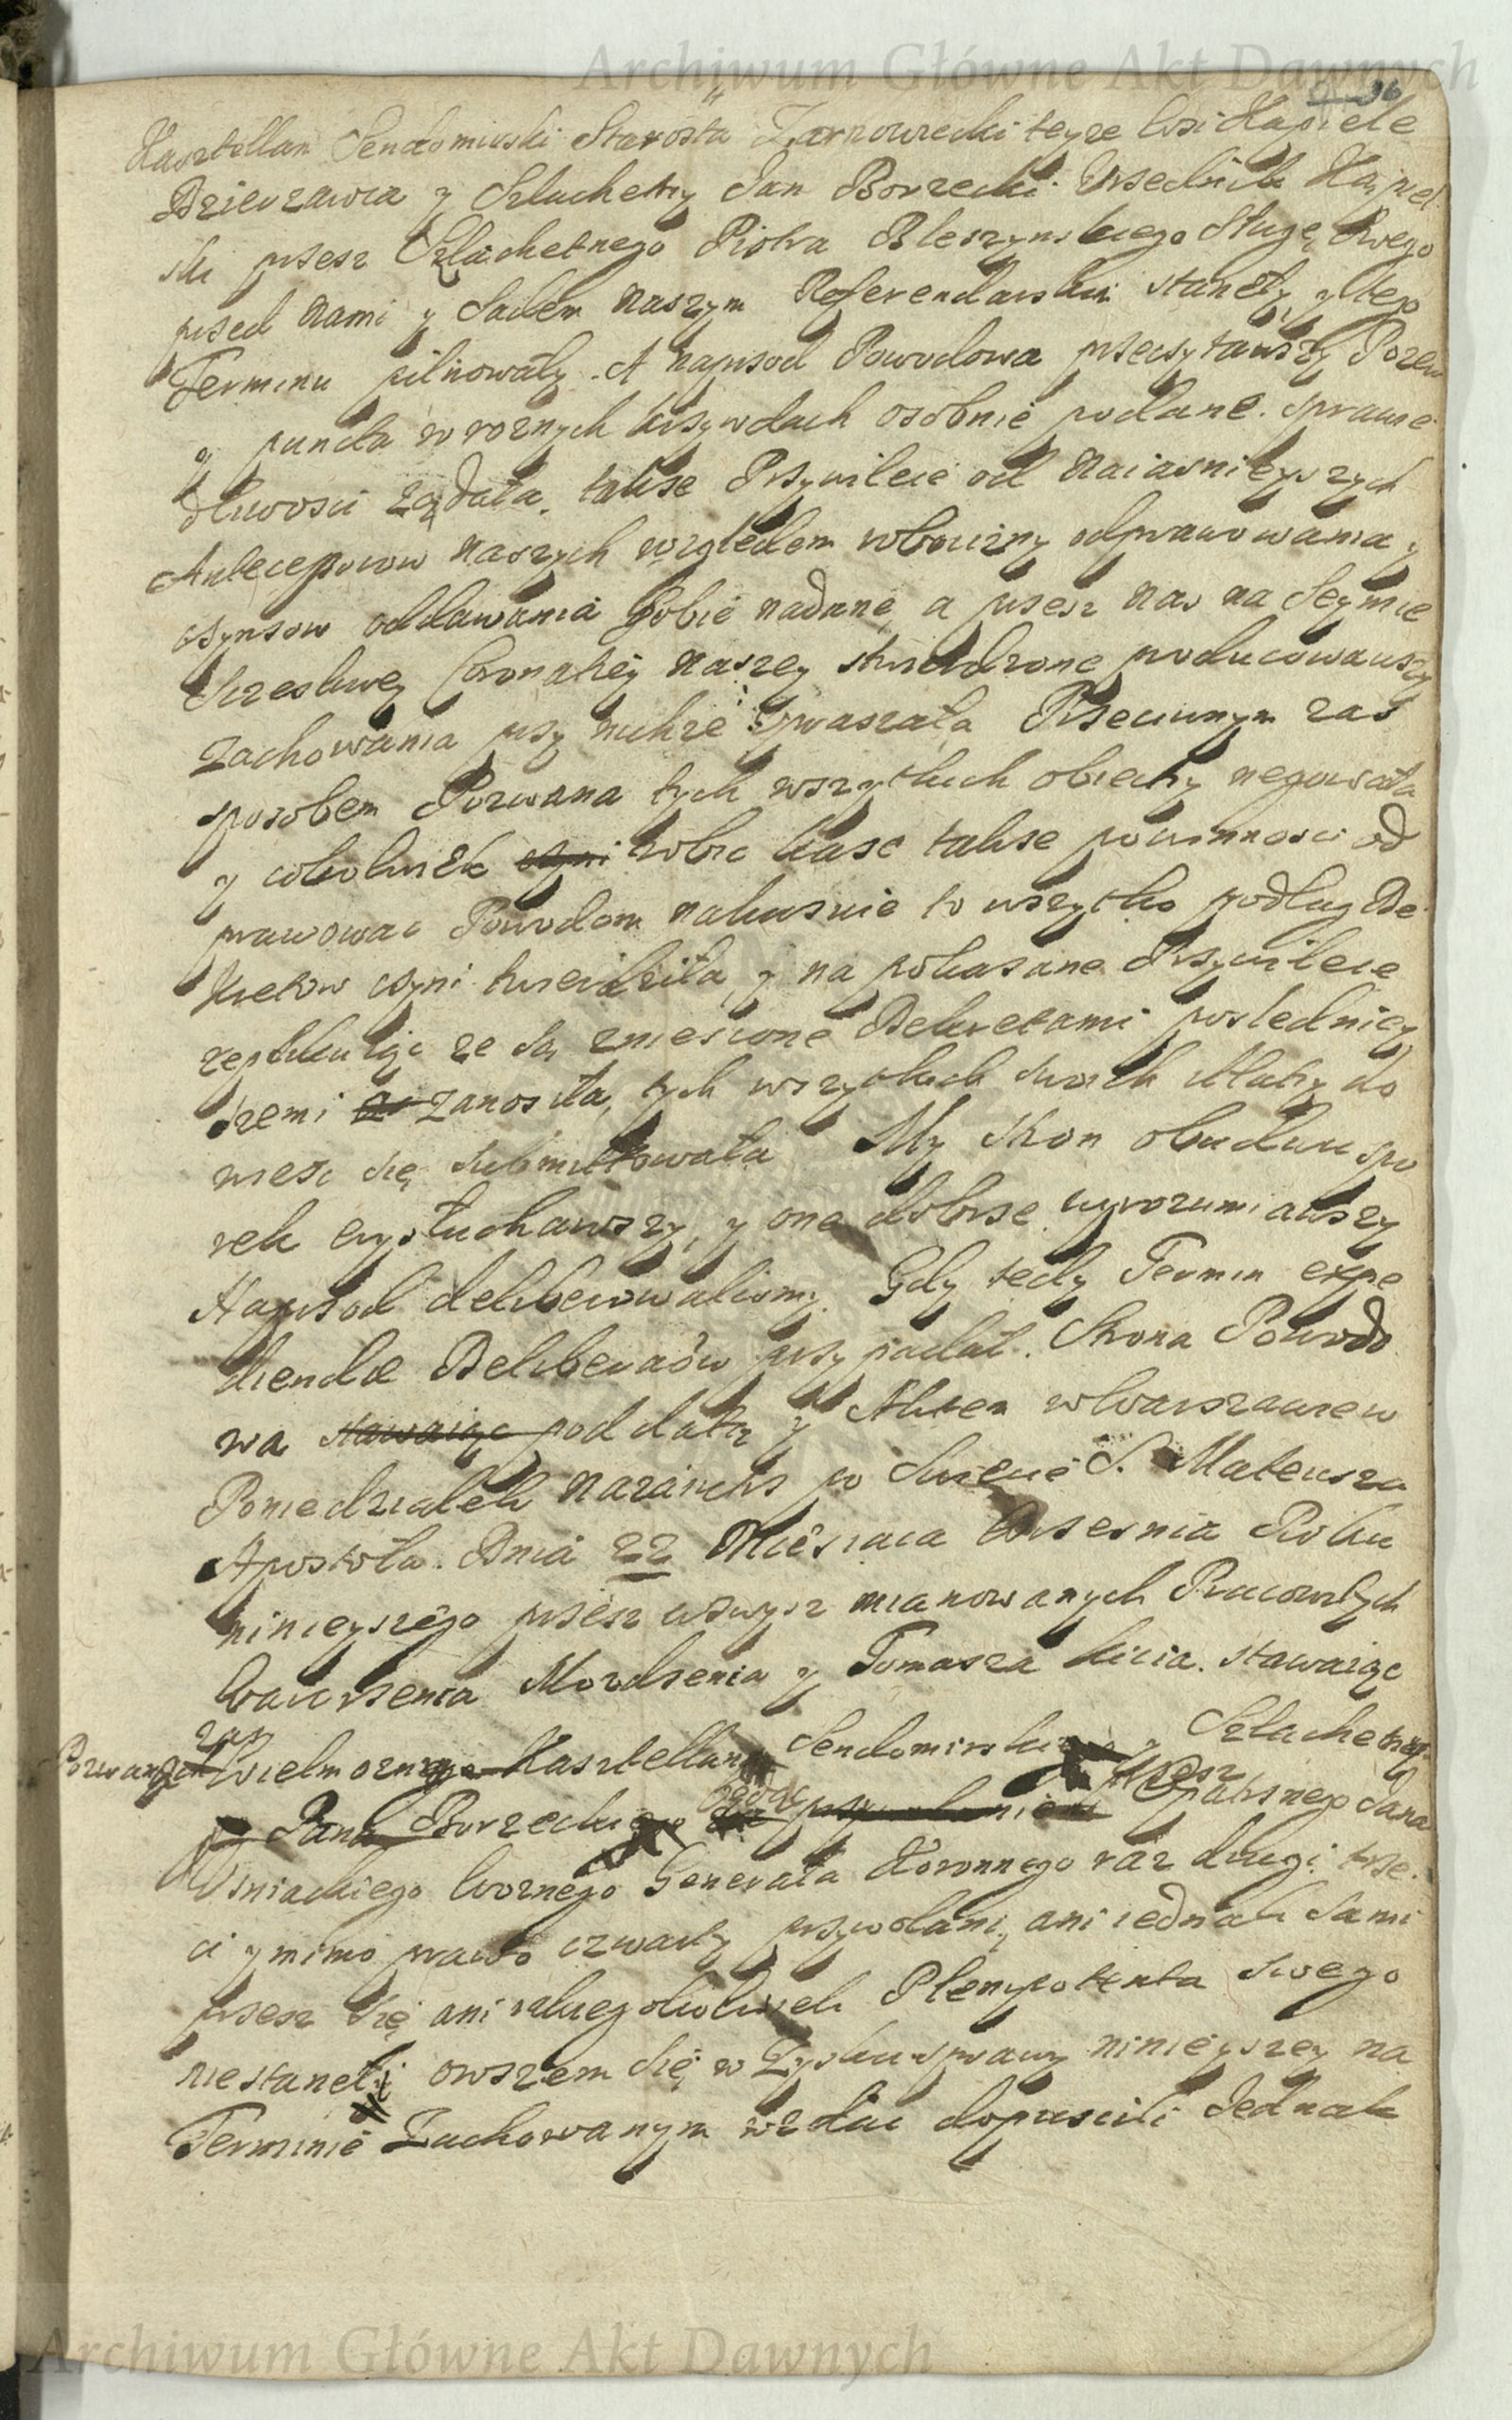 Archiwum Główne Akt Dawnych
36
Kasztellan Sendomirski Starosta Zarnowiecki teyze Wsi Kapiele
Dzierzawca y Szlachetny Jan Borzecki Urzednik Kapiel
ski przez Szlachetnego Piotra Bleszynskiego Sługę Swego
przed nami y Sadem naszym Referendarskim stanęły y tego
Terminu pilnowały. A naprzod Powodowa przeczytawszy Pozew
y puncta w roznych krzywdach osobnie podane. sprawie
dliwosci ządała, takze Przywileie od Naiasnieyszych
Antecessorow naszych względem robocizny odprawowania y
czynszow oddawania Sobie nadane, a przez nas na Seymie
Szczesliwey Coronatiey naszey stwierdzone producowawszy
Zachowania przy nichze upraszała Przeciwnym zas
sposobem Pozwana tych wszytkich obiecty negowała
y cokolwiek czyni robic kaze takze powinnosci od
prawowac Powodom nakazuie to wszytko podług De
kretow czyni twierdziła, y na pokazane Przywileie
replikuiąc ze są zniesione Dekretami posledniey
szemi zanosiła, tych wszytkich swoich Illaty do
niesc się submittowała My Stron obudwu spo
rek wysłuchawszy, y one dobrze wyrozumiawszy
Naprzod deliberowalismy. Gdy tedy Termin expe
diendæ Deliberaów przypadał. Strona Powodo
wa stawaiąc pod datą y Aktem w Warszawie w
Poniedziałek nazaiutrz po Swięcie S. Mateusza
Apostoła. Dnia 22 Miesiaca Wrzesnia Roku
ninieyszego przez wzwysz mianowanych Pracowitych
Wawrzenca Mordzenia y Tomasza Kicia. stawaiąc
zas
Pozwanych Wielmoznego Kasztellana Sendomirskiego y Szlachetnego
Pana Borzeckiego będąc przez Opatrznego Jana
Usniackiego Woznego Generała Koronnego raz drugi trze.
ci y mimo prawo czwarty przywołani, ani iednak Sami
przez się ani iakiegokolwiek Plenipotenta swego
niestaneli owszem się w Zysku sprawy ninieyszey na
Terminie Zachowanym wzdac dopuscili Jednak
Archiwum Główne Akt Dawnych